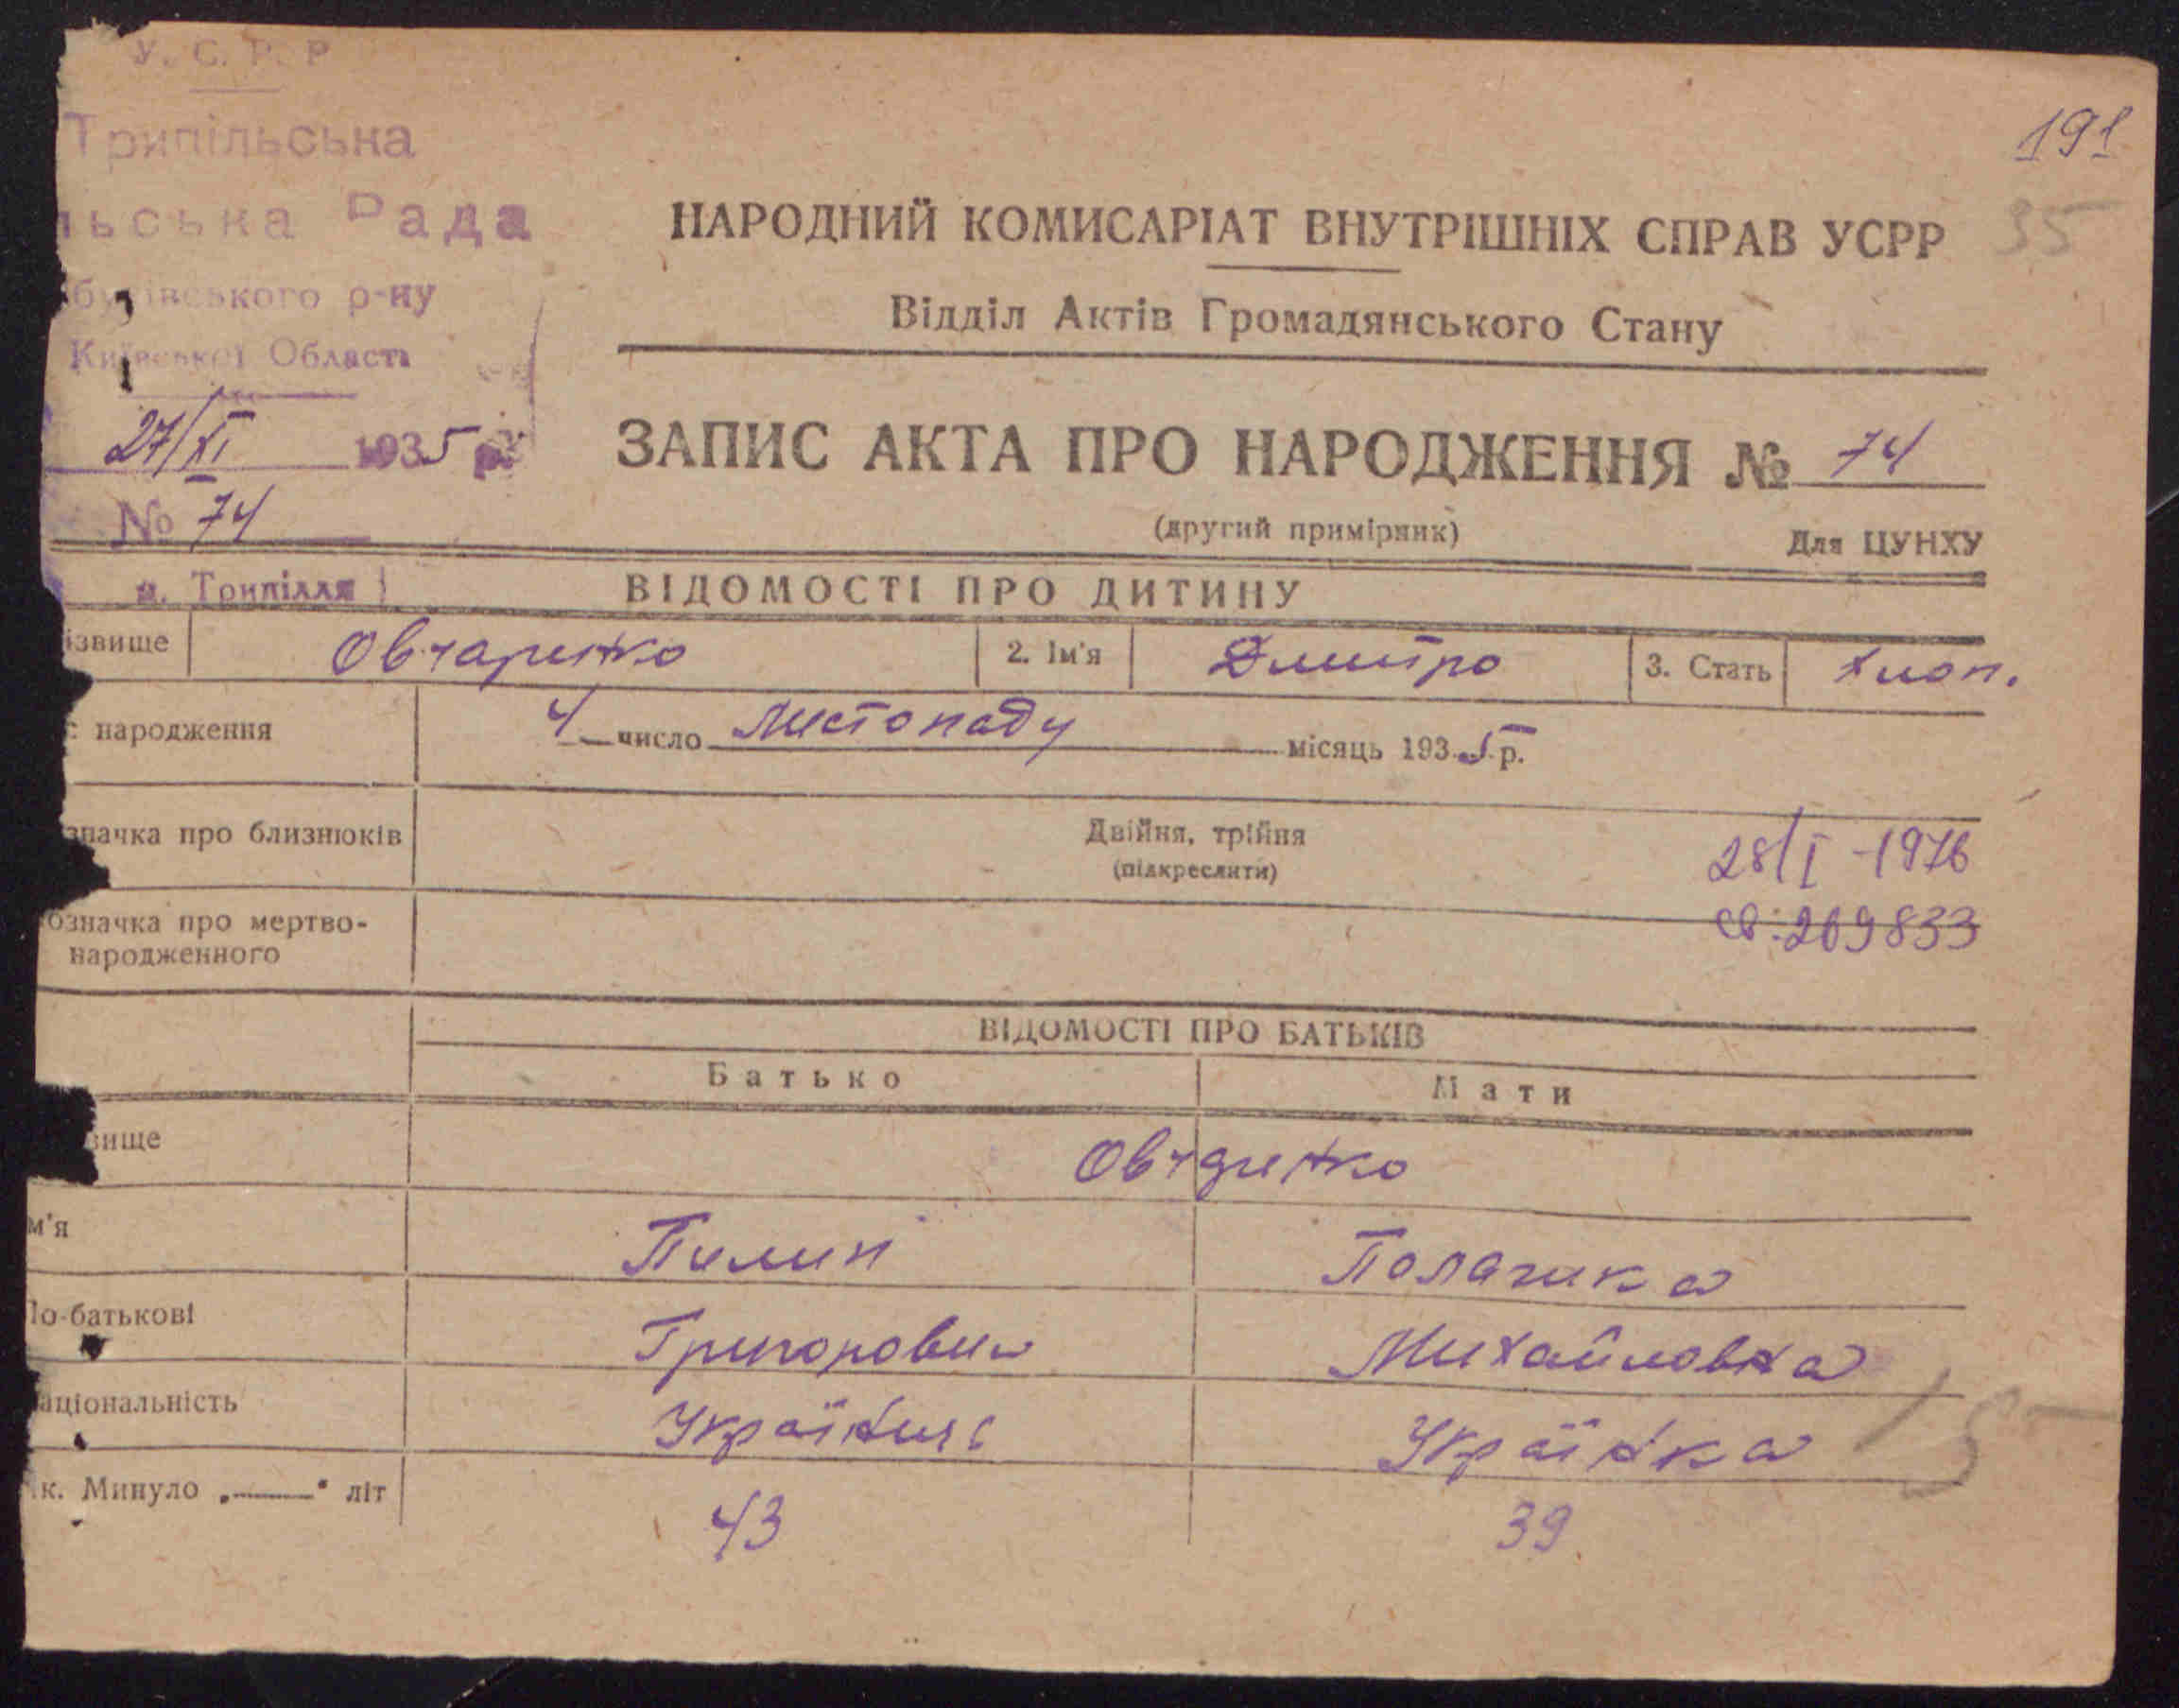 У. С. Р. Р
Трипільська
льська Рада
р-ну
Київської Області
27/XI 1935 р.
№ 74
м. Трипілля
191
35
НАРОДНИЙ КОМИСАРІАТ ВНУТРІШНІХ СПРАВ УСРР
Відділ Актів Громадянського Стану
ЗАПИС АКТА ПРО НАРОДЖЕННЯ № 74
(другий примірник)
Для ЦУНХУ
ВІДОМОСТІ ПРО ДИТИНУ
ізвище Овчаренко 2. Ім'я Дмитро 3. Стать Хлоп.
с народження 4 число Листопаду місяць 1935 р.
значка про близнюків Двійня, трійня
(підкреслити)
28/I-1976
св. 269833
означка про мертво-
народженного
ВІДОМОСТІ ПРО БАТЬКІВ
Батько Мати
вище Овчаренко
м'я Пилип Палажка
По-батькові Григорович Михайловна
аціональність Українець Українка
ік. Минуло „——" літ 43 39